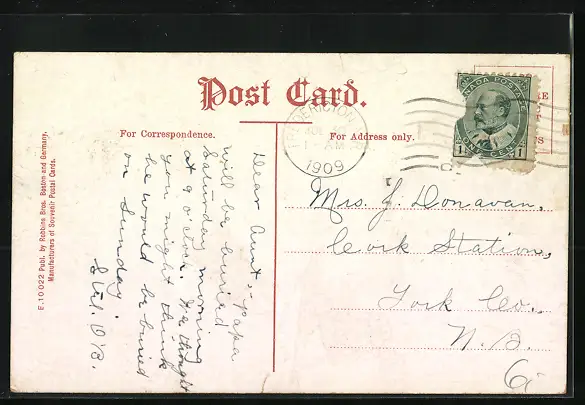 Post Card.
For Correspondence.
For Address only.
E.10022 Publ. by Robbins Bros. Boston and Germany.
Manufacturers of Souvenir Postal Cards.
FREDERICTON
AM
1909
CANADA POSTAGE
1 ONE CENT 1
Dear Aunt, Papa
will be buried
Saturday morning
at 9 o'clock. We thought
you might think
he would be buried
on Sunday.
Mrs. J. Donavan,
Cork Station,
York Co.,
N. B.